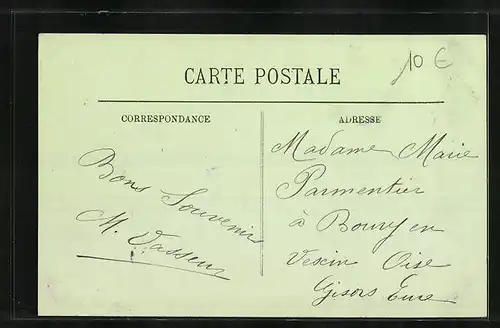 10 €
CARTE POSTALE
CORRESPONDANCE
ADRESSE
Bons
Souvenirs
M. Vasseur
Madame Marie
Parmentier
à Boury en
Vexin Oise
Gisors Eure